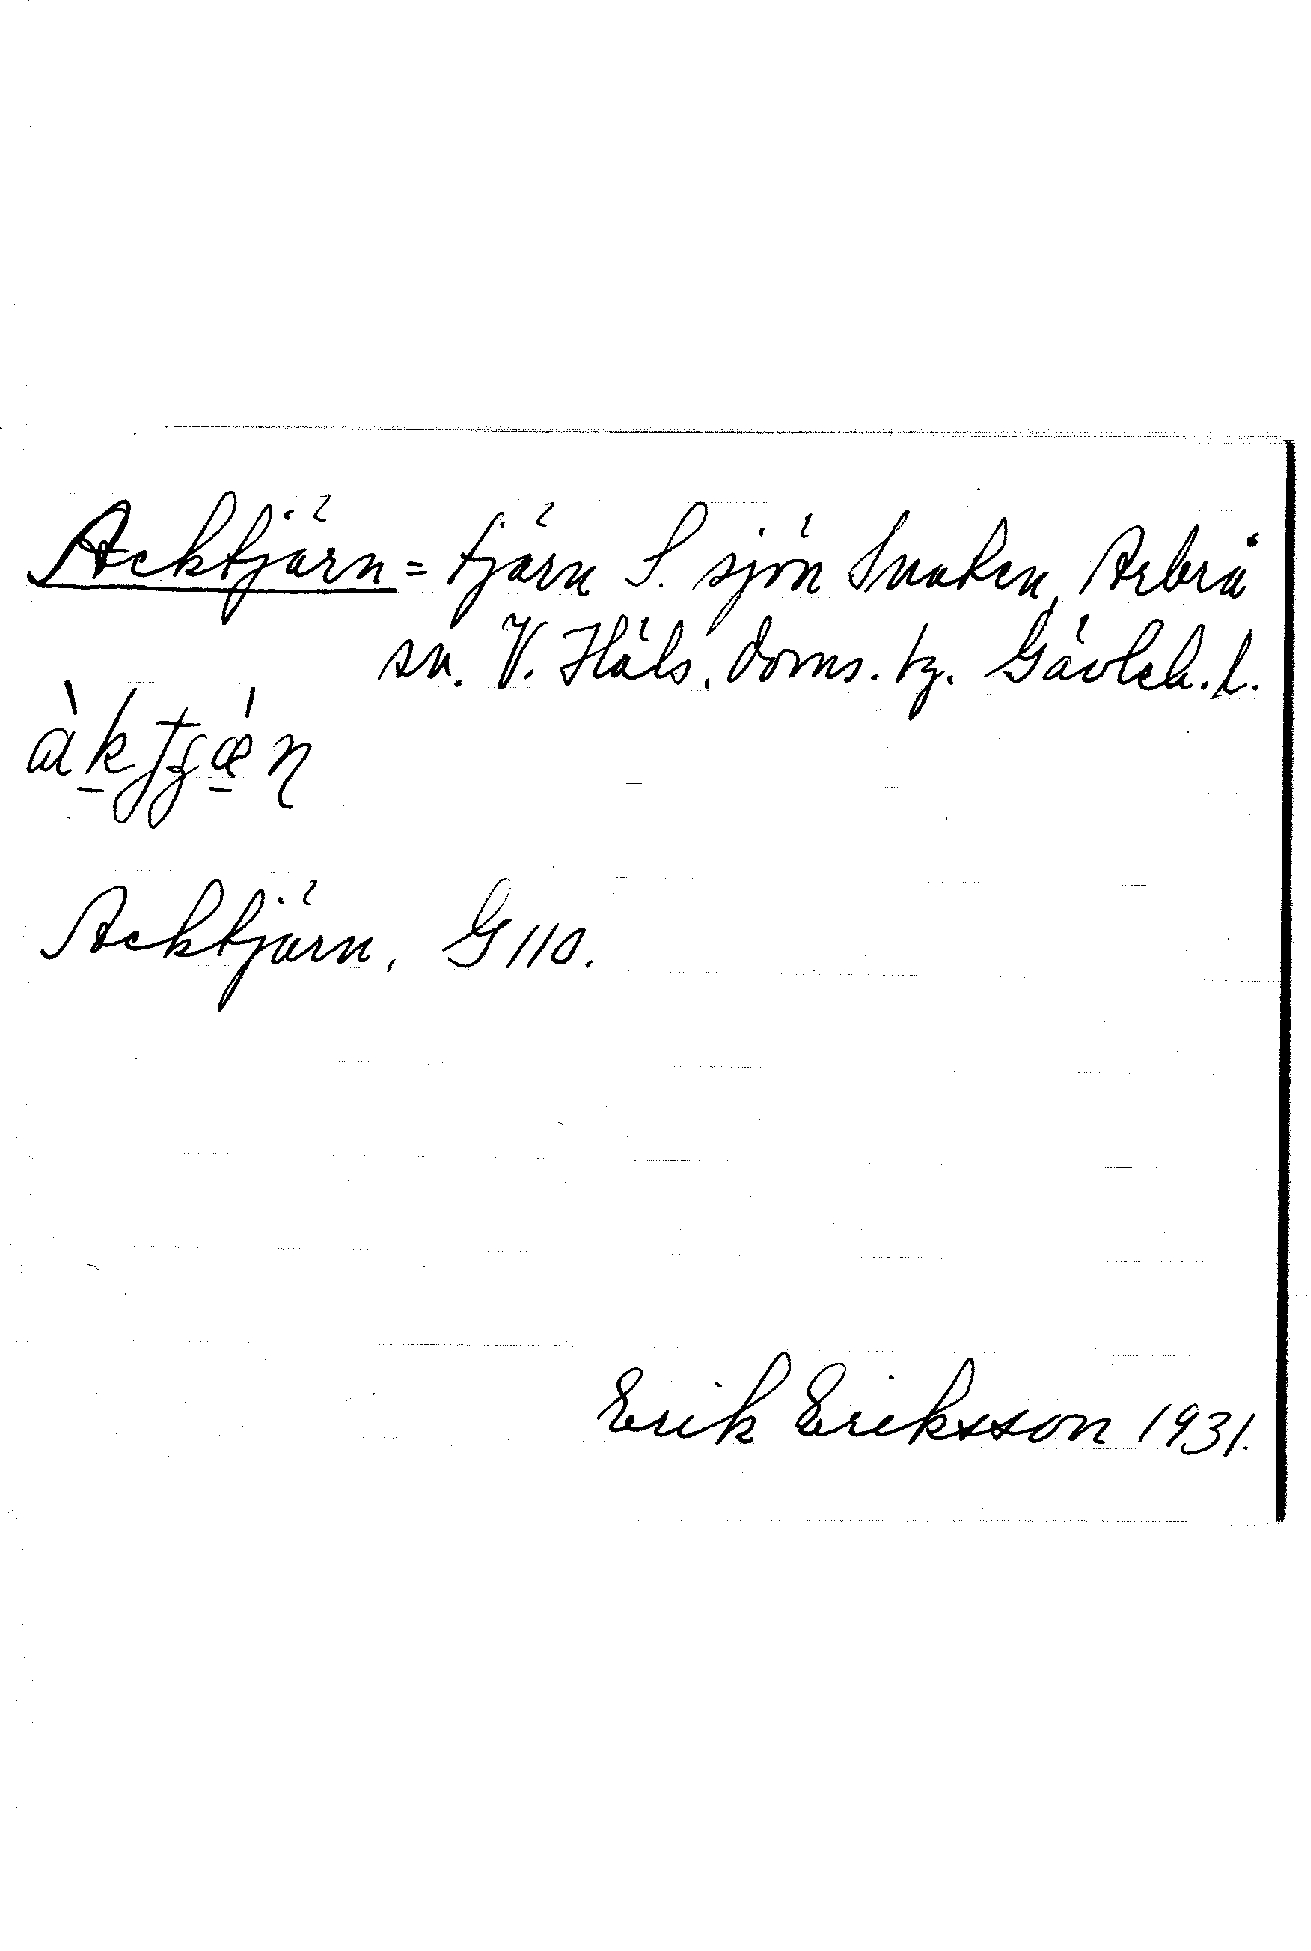 Acktjärn = tjärn S. sjön Snaken, Arbrå
sn. V. Häls. doms. tg. Gävleb. l.
Acktjärn, G 110.
Erik Eriksson 1931.